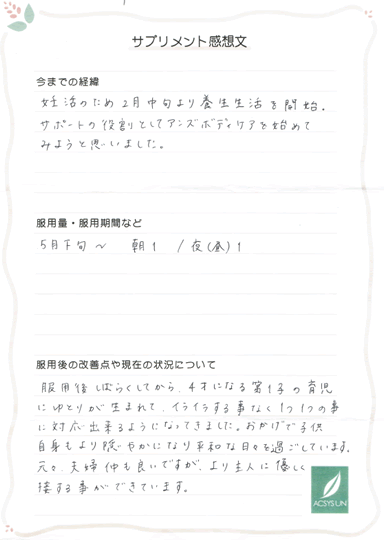 サプリメント感想文
今までの経緯
妊活のため2月中旬より養生生活を開始。
サポートの役割としてアンズボディケアを始めて
みようと思いました。
服用量・服用期間など
5月下旬〜 朝1 /夜(昼)1
服用後の改善点や現在の状況について
服用後しばらくしてから、4才になる第1子の育児
にゆとりが生まれて、イライラする事なく1つ1つの事
に対応出来るようになってきました。おかげで子供
自身もより穏やかになり平和な日々を過ごしています。
元々、夫婦仲も良いですが、より主人に優しく
接する事ができています。
ACSYSUN